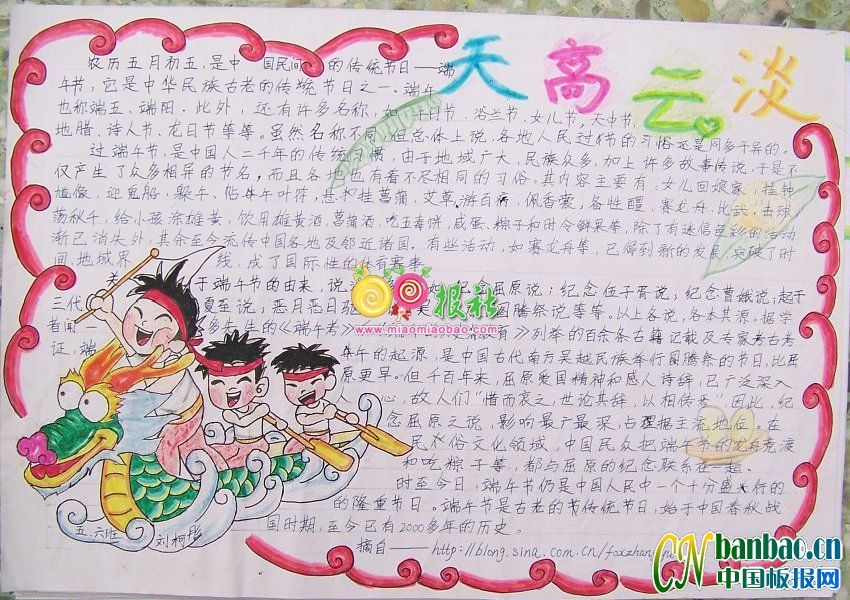 天高云淡
农历五月初五,是中国民间的传统节日——端
午节,它是中华民族古老的传统节日之一。端午
也称端五、端阳。此外,还有许多名称,如:午日节、浴兰节,女儿节,天中节,
地腊、诗人节、龙日节等等。虽然名称不同,但总体上说,各地人民过节的习俗还是同多于异的。
过端午节,是中国人二千年的传统习惯,由于地域广大,民族众多,加上许多故事传说,于是不
仅产生了众多相异的节名,而且各地也有着不尽相同的习俗。其内容主要有:女儿回娘家,挂钟
馗像,迎鬼船、躲午、帖午叶符,悬挂菖蒲、艾草,游百病,佩香囊,备牲醴,赛龙舟,比武,击球,
荡秋千,给小孩涂雄黄,饮用雄黄酒、菖蒲酒,吃五毒饼、咸蛋、粽子和时令鲜果等,除了有迷信色彩的活动
渐已消失外,其余至今流传中国各地及邻近诸国。有些活动,如赛龙舟等,已得到新的发展,突破了时
间,地域界线,成了国际性的体育赛事。
关于端午节的由来,说 纪念屈原说;纪念伍子胥说;纪念曹娥说;起于
三代夏至说;恶月恶日驱 图腾祭说等等。以上各说,各本其源。据学
者闻一多先生的《端午考》 列举的百余条古籍记载及专家考古考
证,端午的起源,是中国古代南方吴越民族举行图腾祭的节日,比屈
原更早。但千百年来,屈原爱国精神和感人诗辞,已广泛深入
人心,故人们“惜而哀之,世论其辞,以相传焉”因此,纪
念屈原之说,影响最广最深,占据主流地位。在
民俗文化领域,中国民众把端午节的龙舟竞渡
和吃粽子等,都与屈原的纪念联系在一起。
时至今日,端午节仍是中国人民中一个十分盛行的
的隆重节日。端午节是古老的传统节日,始于中国春秋战
国时期,至今已有2000多年的历史。
摘自——http://blong.sina.com.cn/foxzhan
五.六班 刘柯彤
报社
www.miaomiaobao.com
CN banbao.cn
中国板报网